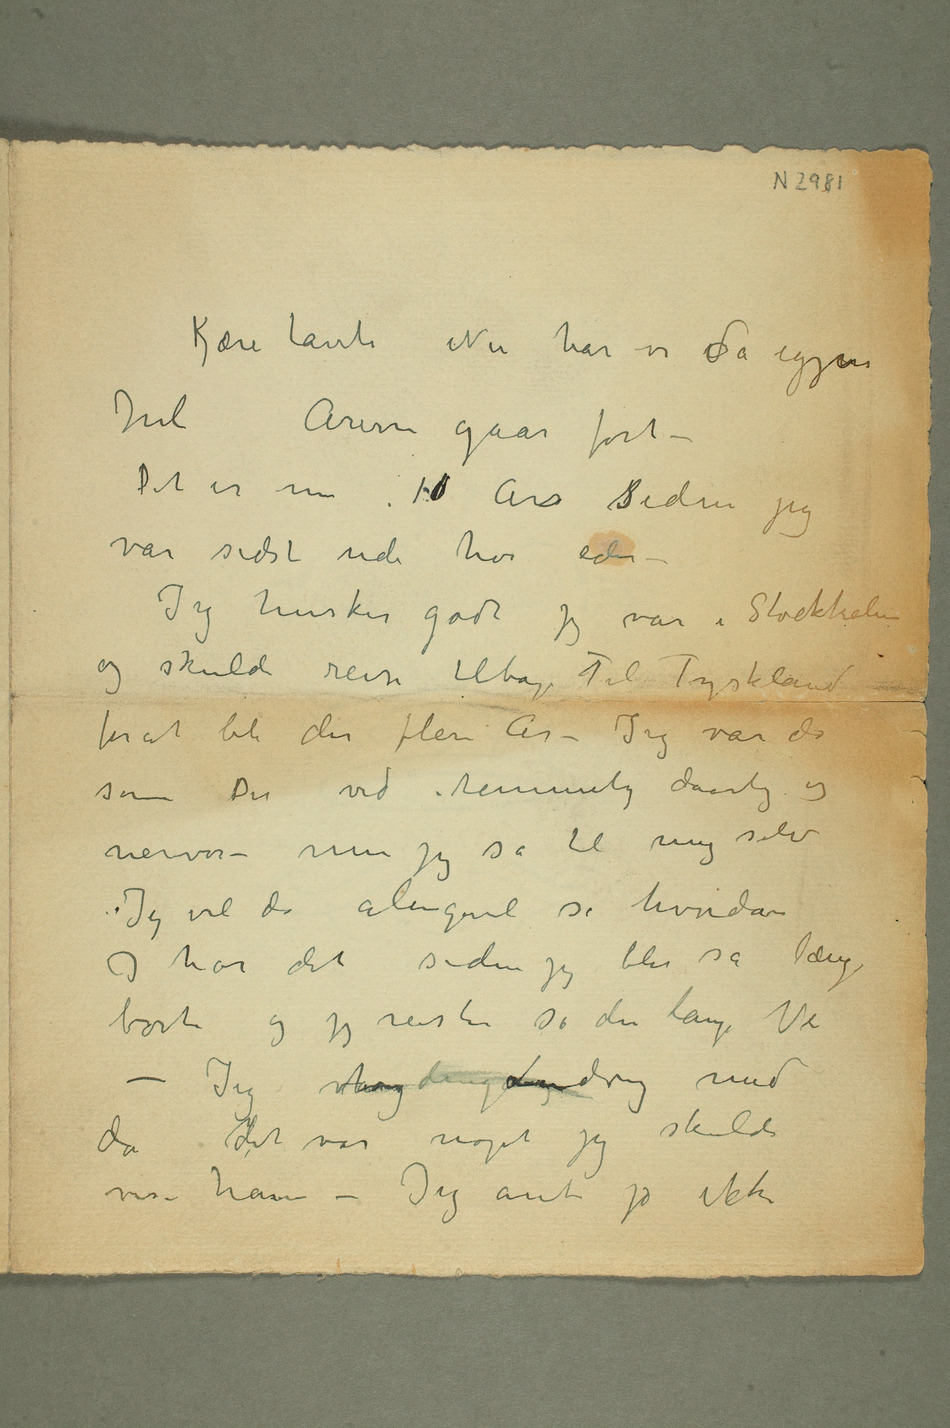 N 2981
Kjære tante Nu har vi da igjen
Jul Arene gaar fort –
Det er nu 10 Ars Siden jeg
var sidst ude hos eder –
Jeg husker godt jeg var i Stockholm
og skulde reise tilbage Til Tyskland
forat bli der flere År – Jeg var da
som Du ved temmelig daarlig og
nervøs – men jeg sa til mig selv
: Jeg vil da alligevel se hvordan
I har det siden jeg blir så længe
borte og jeg reiste så den lange Vei
– Jeg drog ned
da det var noget jeg skulde
vise ham – Jeg ante jo ikke